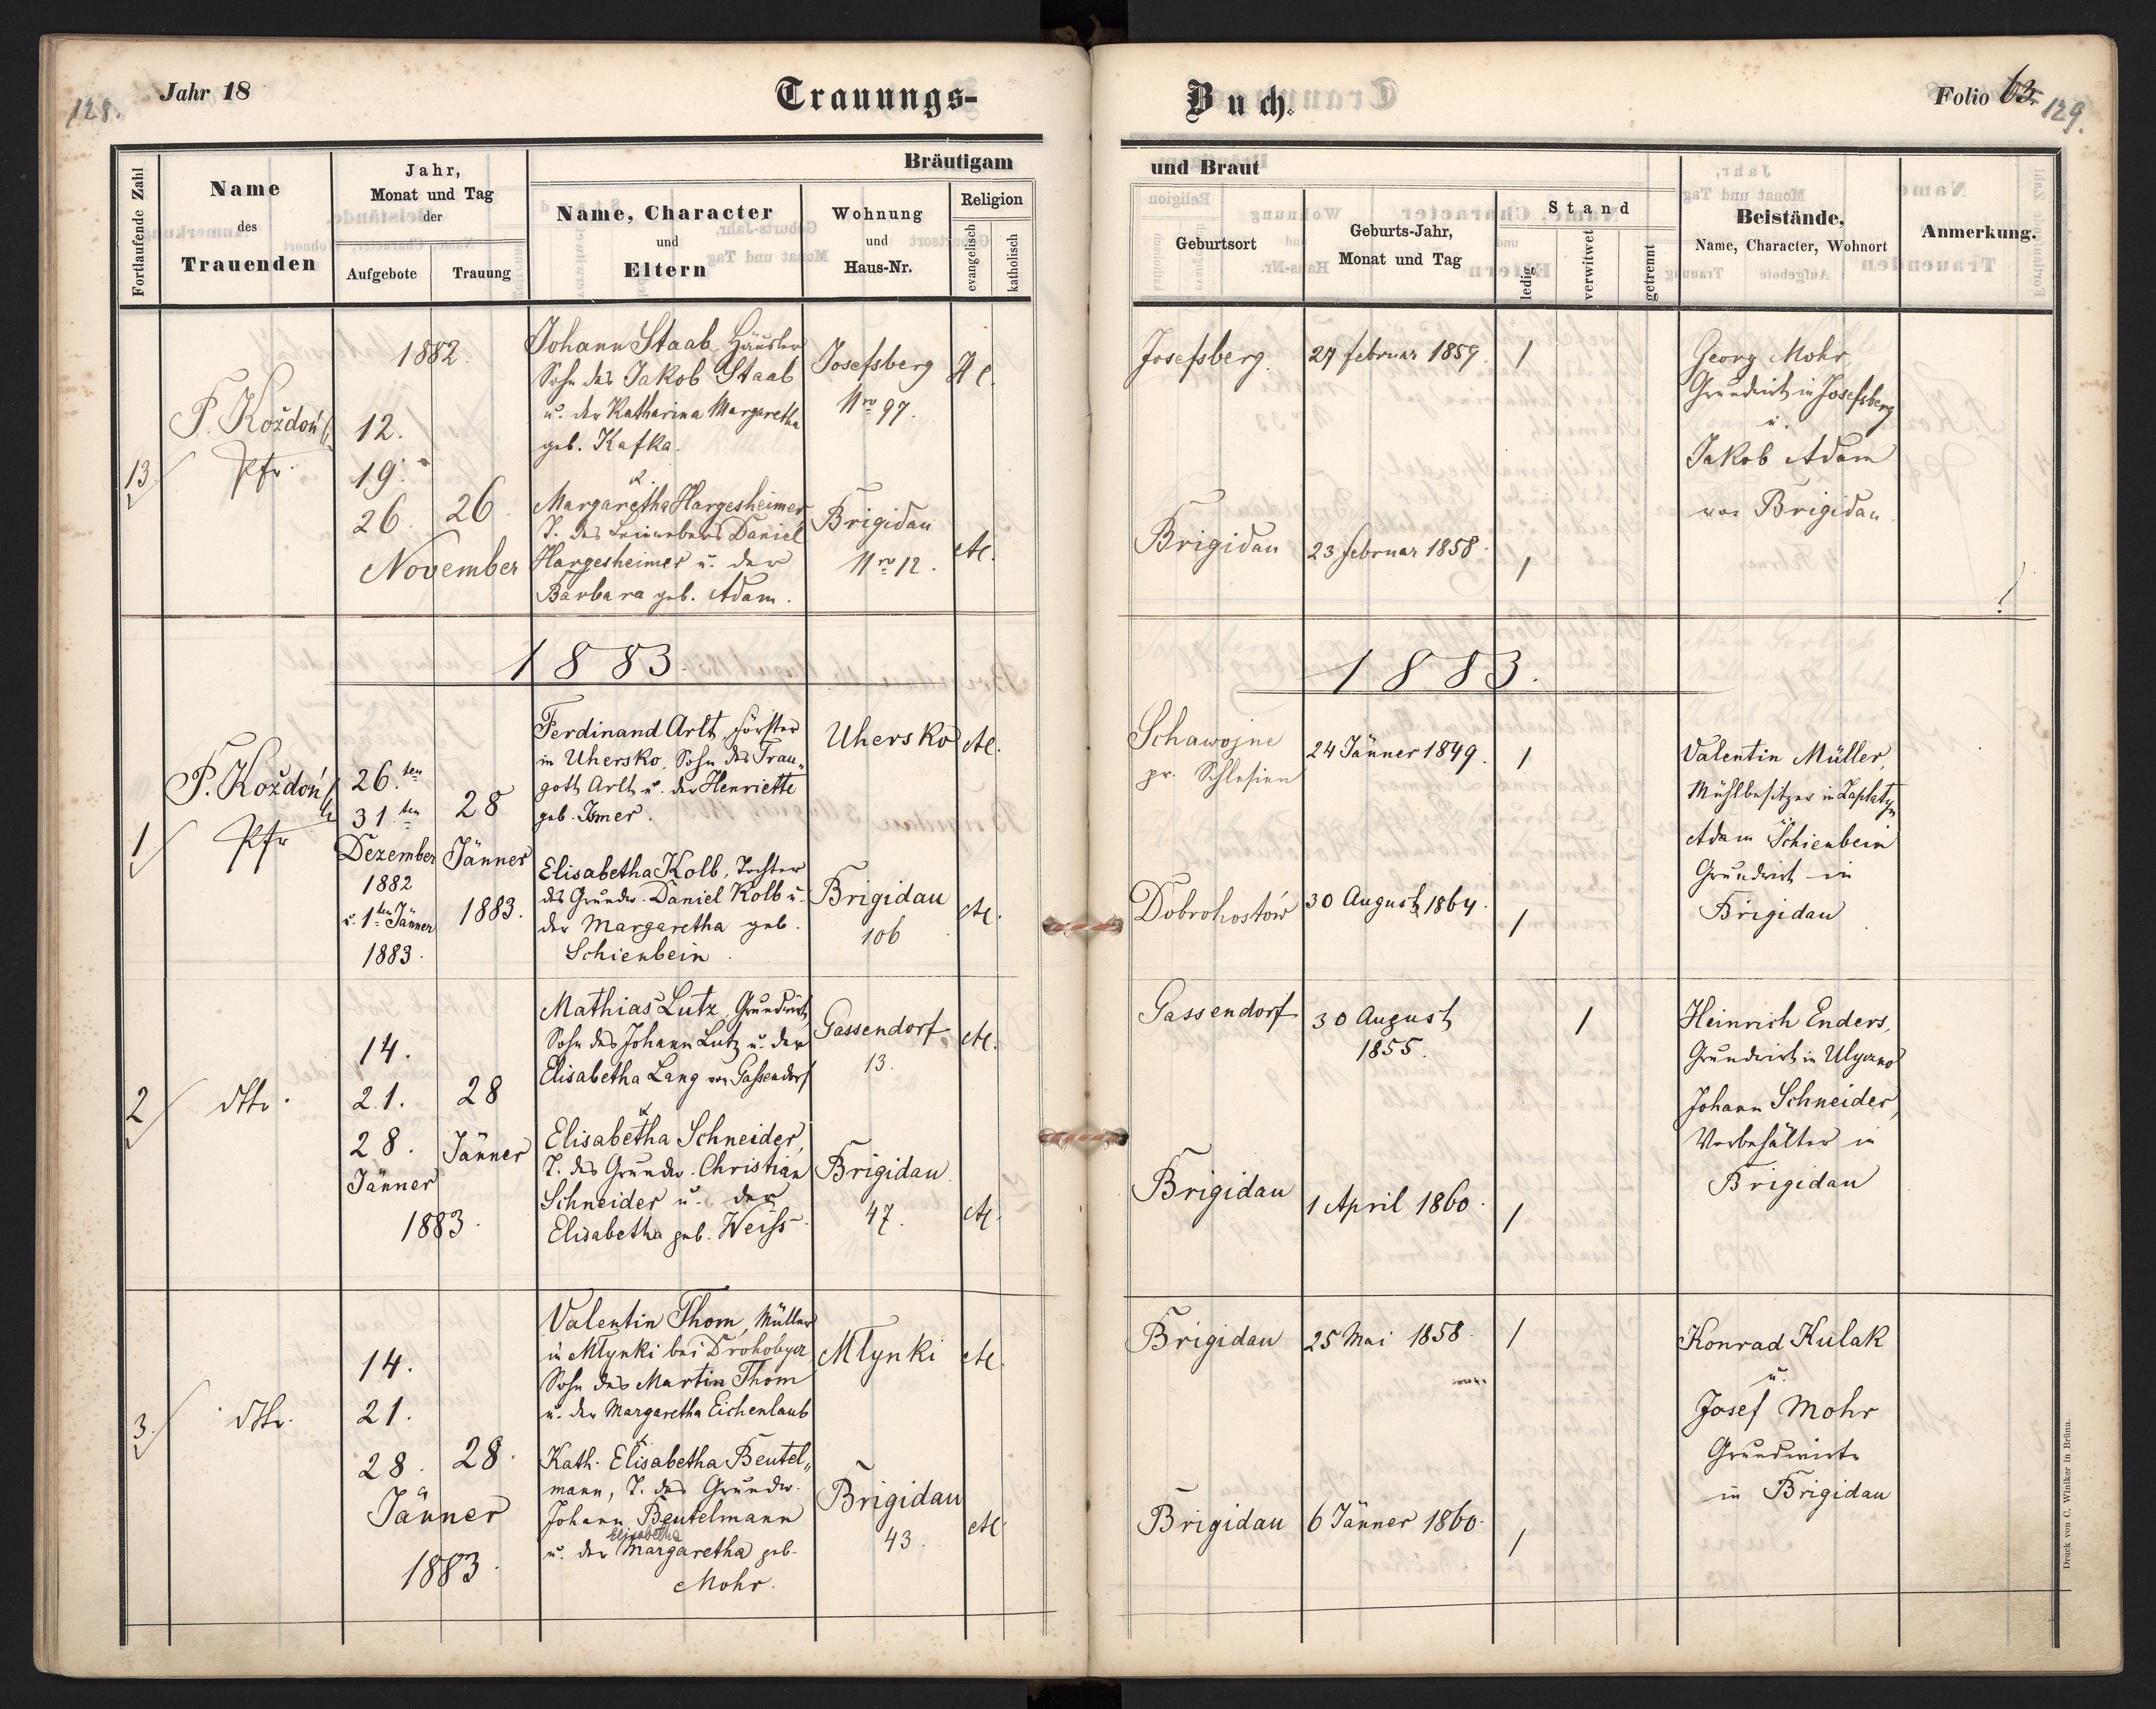 128.
Jahr 18
Trauungs-
Fortlaufende Zahl
Name
des
Trauenden
Jahr,
Monat und Tag
der
Aufgebote
Trauung
Bräutigam
Name, Character
und
Eltern
Wohnung
und
Haus-Nr.
Religion
evangelisch
katholisch
13
F. Koždoń
Pfr.
1882.
12.
19.
26.
26.
November
Johann Staab, Häusler
Sohn des Jakob Staab
u. der Katharina Margaretha
geb. Kafka.
u.
Margaretha Hargesheimer
T. des Leinwebers Daniel
Hargesheimer u. der
Barbara geb. Adam.
Josefsberg
Nro 97.
Brigidau
Nro 12.
1883.
1
F. Koždoń
Pfr
26.ten
31.ten
Dezember
1882
u. 1ten Jänner
1883.
28
Jänner
1883.
Ferdinand Arlt, Förster
in Uhersko, Sohn des Trau„
gott Arlt u. der Henriette
geb. Ismer.
Elisabetha Kolb, Tochter
des Grundw. Daniel Kolb u.
der Margaretha geb.
Schienbein.
Uhersko
Brigidau
106
2
dtto.
14.
21.
28.
Jänner
1883.
28
Jänner
Mathias Lutz, Grundwirt
Sohn des Johann Lutz u. der
Elisabetha Lang von Gassendorf
u.
Elisabetha Schneider,
T. des Grundw. Christian
Schneider u. der
Elisabetha geb. Weiss.
Gassendorf
13.
Brigidau
47.
3.
dtto.
14.
21.
28.
Jänner
1883.
28.
Valentin Thom, Müller
in Mlynki bei Drohobycz
Sohn des Martin Thom
u. der Margaretha Eichenlaub
u.
Kath. Elisabetha Beutel„
mann, T. des Grundw.
Johann Beutelmann
Elisabetha
u. der Margaretha geb.
Mohr.
Mlynki
Brigidau
43.
Buch.
Folio 63.
129.
und Braut
Geburtsort
Geburts-Jahr,
Monat und Tag
Stand
ledig
verwitwet
getrennt
Beistände,
Name, Character, Wohnort
Anmerkung.
Josefsberg. 27 Februar 1859. /
Brigidau 23 Februar 1858. /
Georg Mohr,
Grundwirt in Josefsberg
u.
Jakob Adam
von Brigidau
1883.
Schawojne
pr. Schlesien
24 Jänner 1849. /
Dobrohostów 30 August 1864. /
Valentin Müller,
Mühlbesitzer in Zaplatyn
u.
Adam Schienbein
Grundwirt in
Brigidau
Gassendorf 30 August
1855. /
Brigidau 1 April 1860. /
Heinrich Enders,
Grundwirt in Ulyczno
Johann Schneider,
Vorbehälter in
Brigidau
Brigidau 25 Mai 1858. /
Brigidau 6 Jänner 1860. /
Konrad Kulak
u.
Josef Mohr
Grundwirte
in Brigidau
Druck von C. Winiker in Brünn.